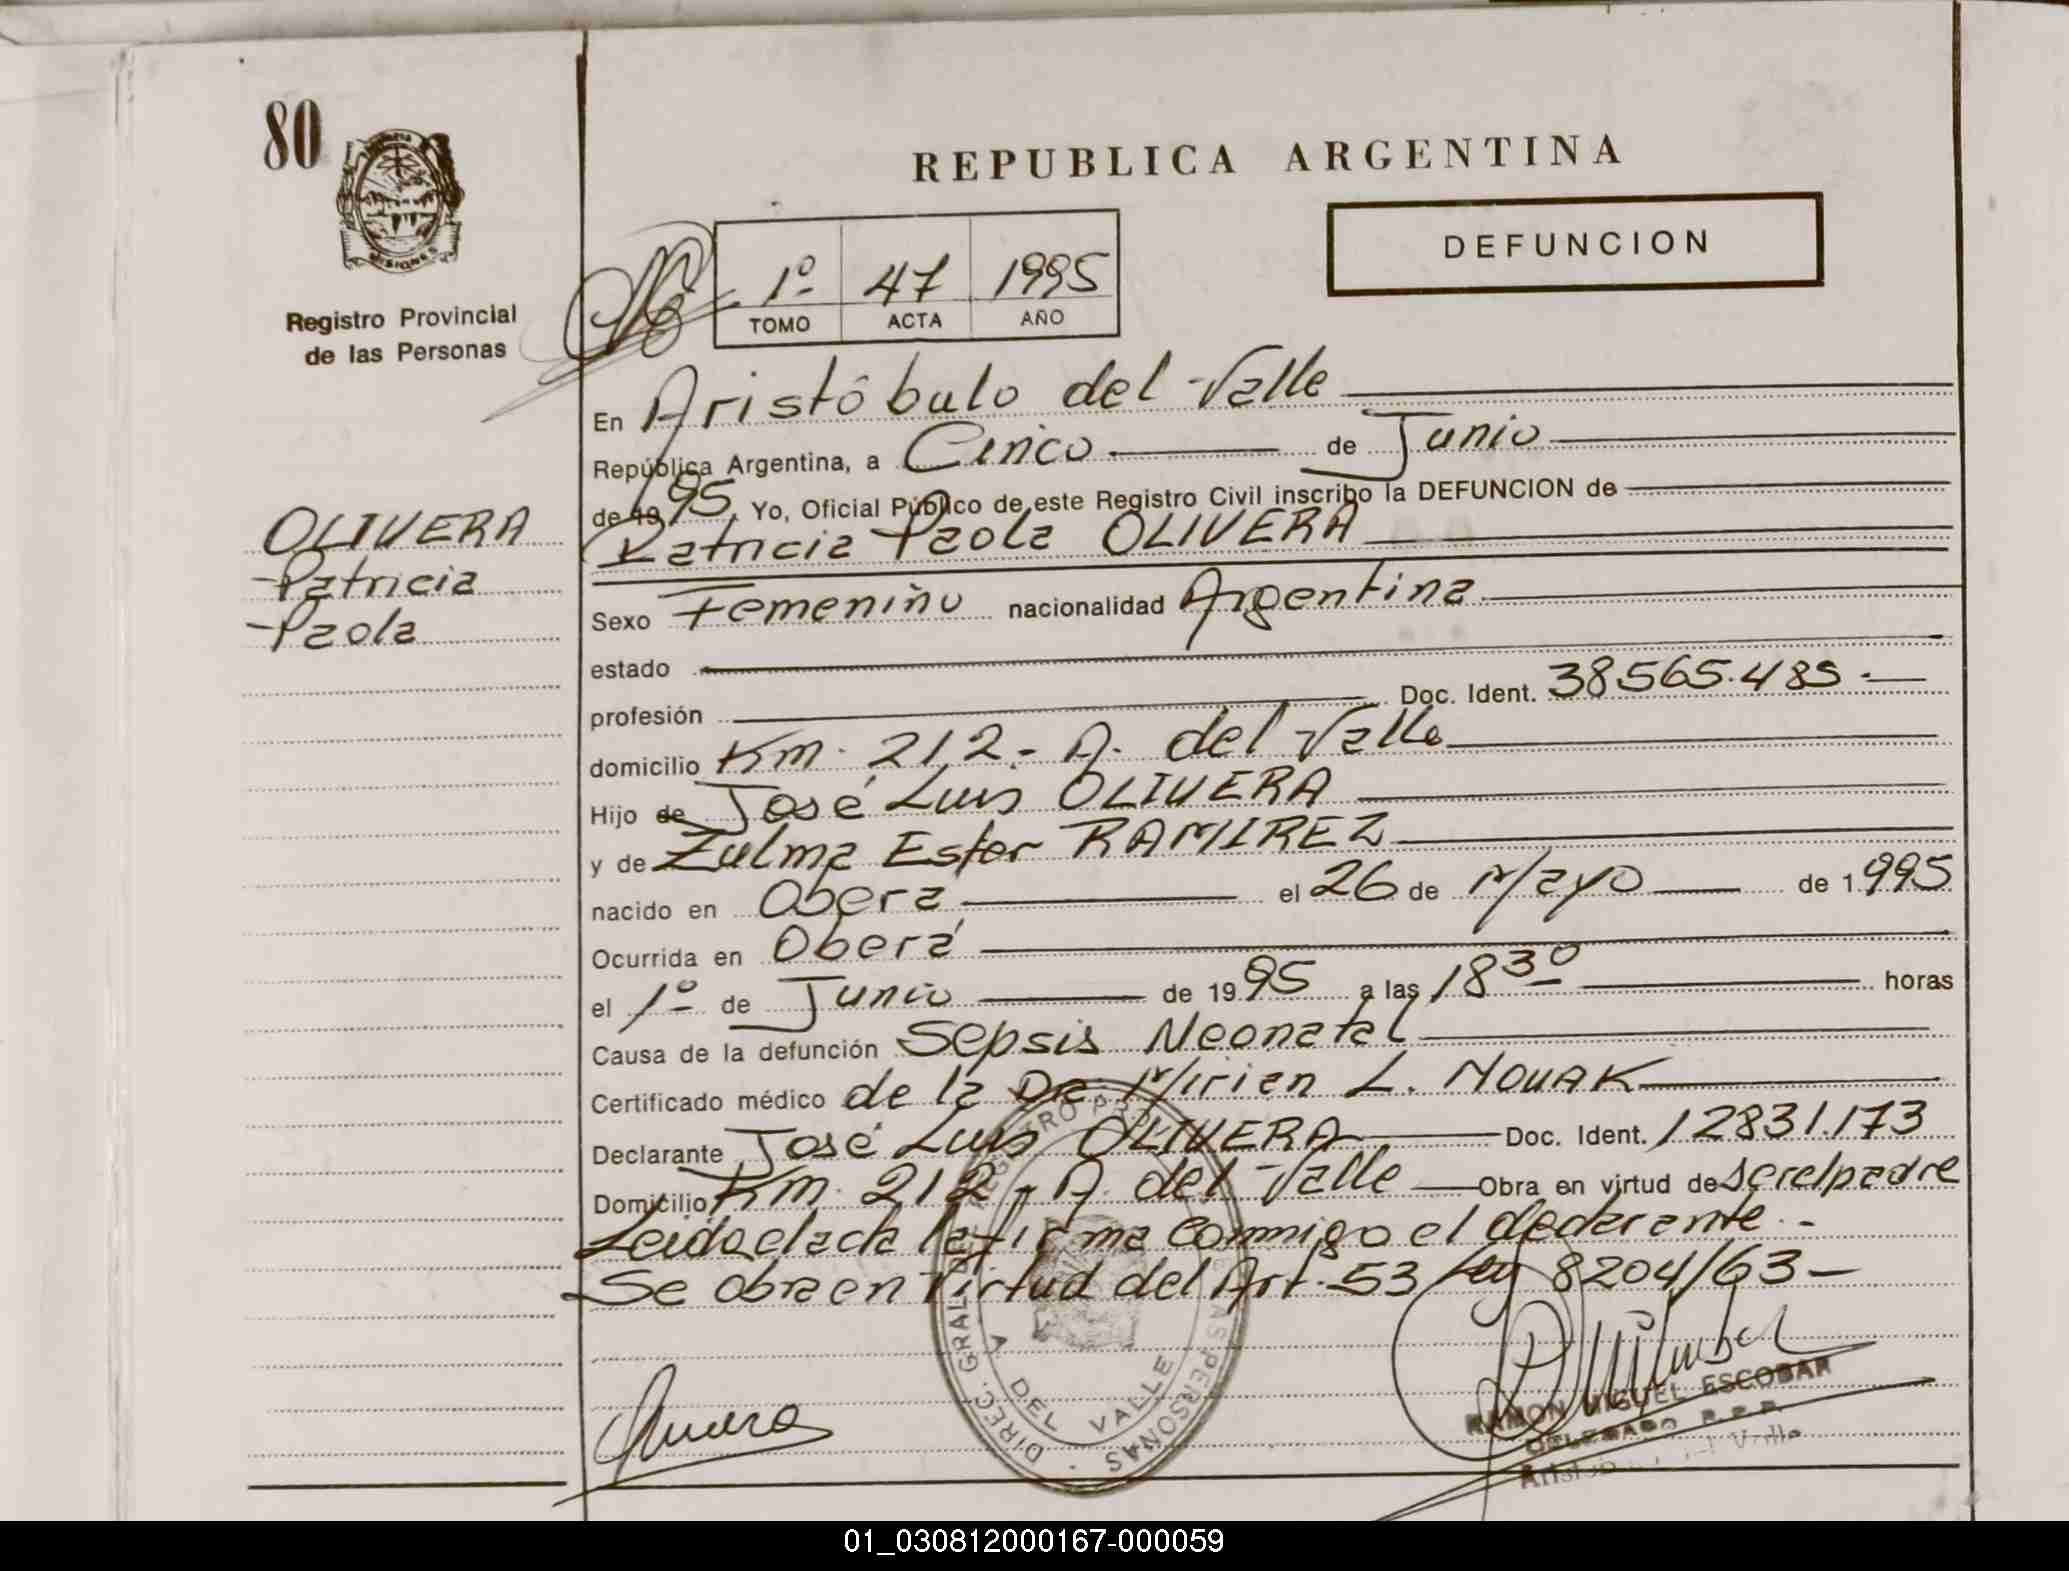 80
MISIONES
Registro Provincial
de las Personas
OLIVERA
Patricia
Paola
REPUBLICA ARGENTINA
DEFUNCION
1º 47 1995
TOMO ACTA AÑO
En Aristóbulo del Valle
República Argentina, a Cinco de Junio
de 1995, Yo, Oficial Público de este Registro Civil inscribo la DEFUNCION de
Patricia Paola OLIVERA
Sexo Femenino nacionalidad Argentina
estado
profesión Doc. Ident. 38.565.485.-
domicilio Km. 212.- A. del Valle
Hijo de José Luis OLIVERA
y de Zulma Ester RAMIREZ
nacido en Oberá el 26 de Mayo de 1995
Ocurrida en Oberá
el 1º de Junio de 1995 a las 18 30 horas
Causa de la defunción Sepsis Neonatal
Certificado médico de la Dra. Mirian L. NOVAK
Declarante José Luis OLIVERA Doc. Ident. 12831.173
Domicilio Km. 212 - A. del Valle Obra en virtud de ser el padre
Leida el acta la firma conmigo el declarante.-
Se obra en virtud del Art. 53 Ley 8204/63-
DIREC. GRAL. DE REGISTRO PROV. DE LAS PERSONAS
A. DEL VALLE
RAMON MIGUEL ESCOBAR
DELEGADO R.P.P.
01_030812000167-000059